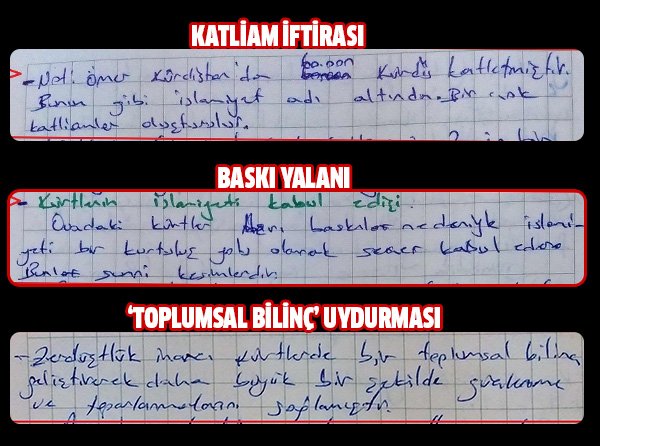 KATLİAM İFTİRASI
- Not: Ömer Kürdistan'da 60.000 Kürdü katletmiştir.
Bunun gibi islamiyet adı altında. Bir çok
katliamlar oluşturulur.
BASKI YALANI
- Kürtlerin islamiyeti kabul edişi.
Ovadaki kürtler baskılar nedeniyle islami-
yeti bir kurtuluş yolu olarak seçer kabul eder.
Bunlar sunni kesimlerdir.
‘TOPLUMSAL BİLİNÇ’ UYDURMASI
- Zerdüştlük inancı kürtlerde bir toplumsal bilinç
geliştirerek daha büyük bir şekilde güçlenme
ve toparlanmalarını sağlamıştır.